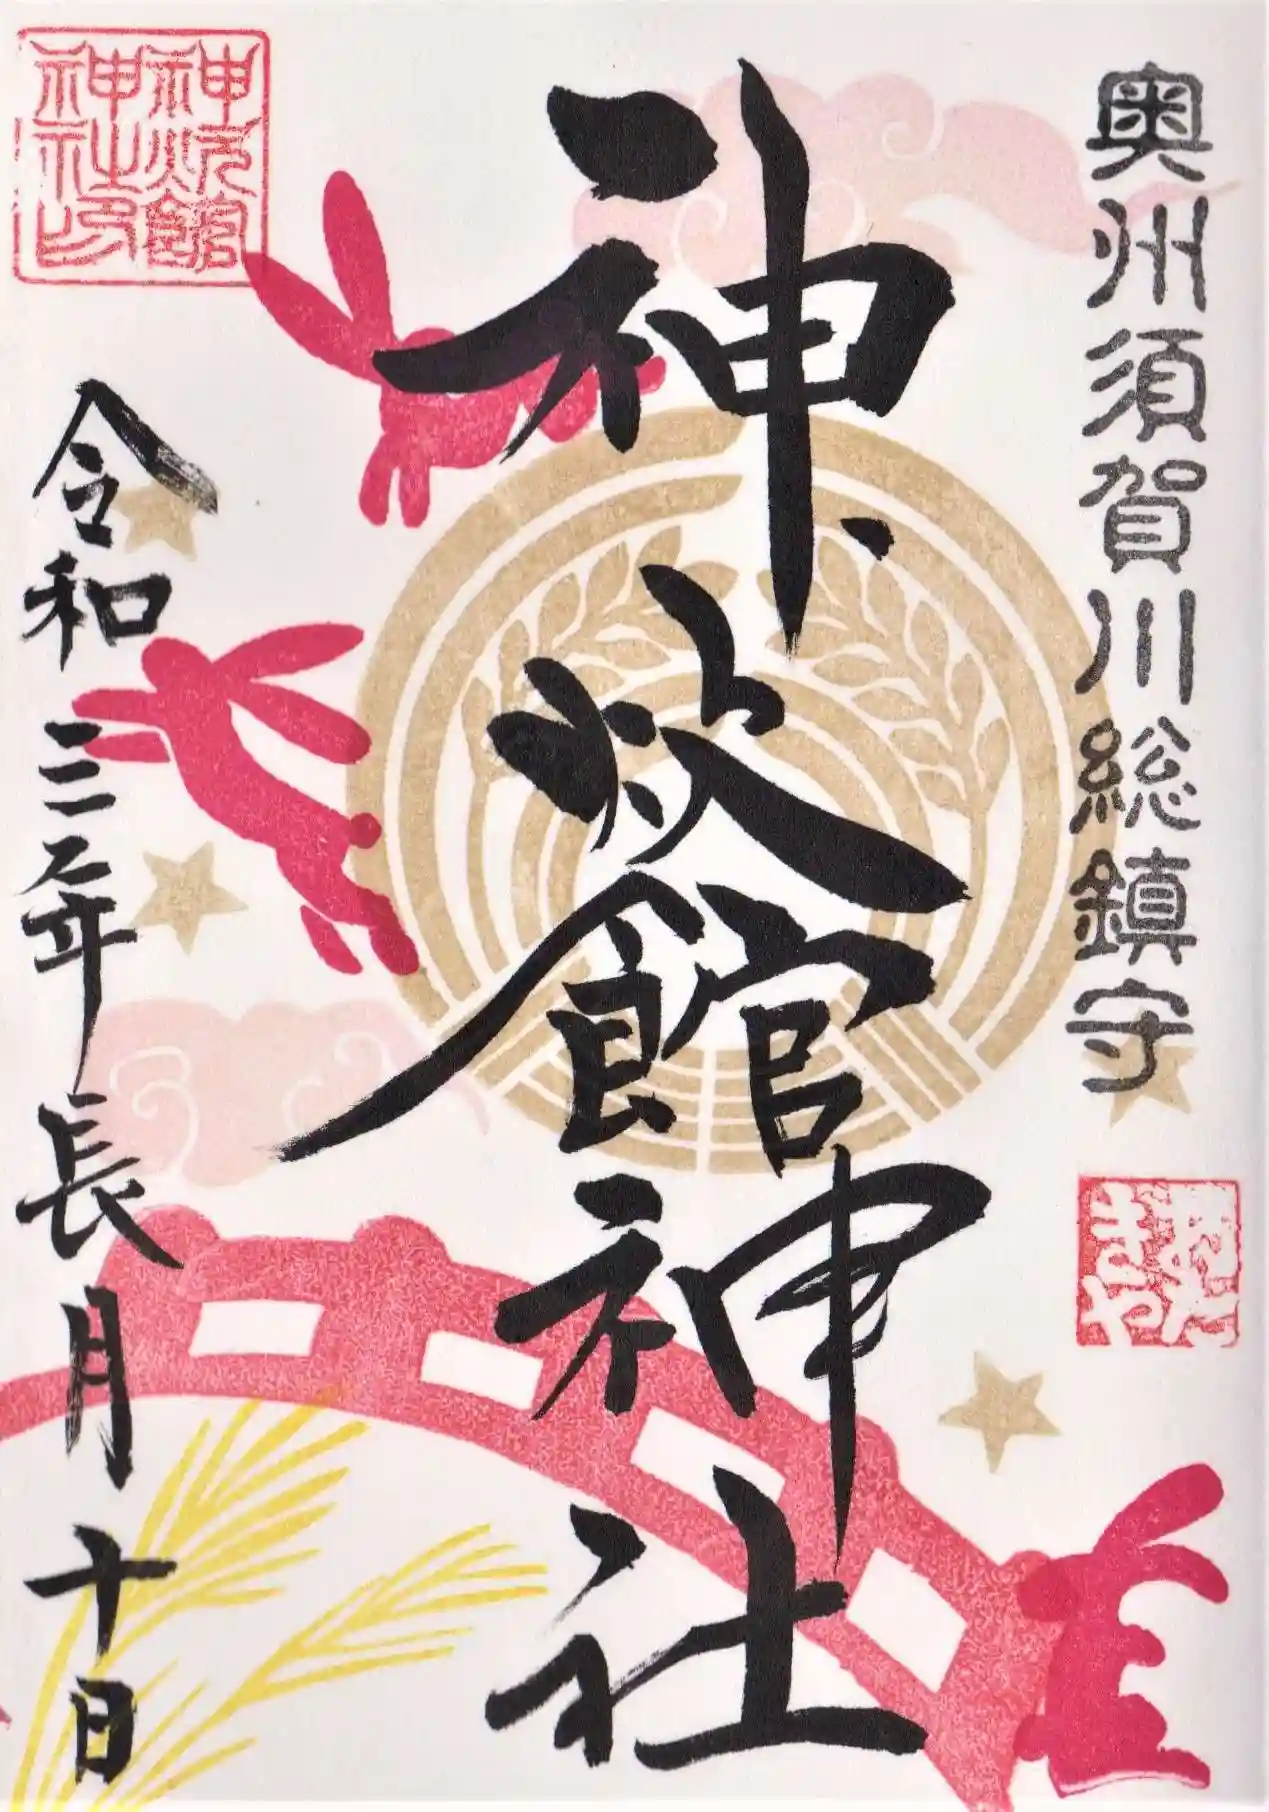 奥州須賀川総鎮守
おたきや
神炊館神社
神炊館
神社印
令和三年長月十日